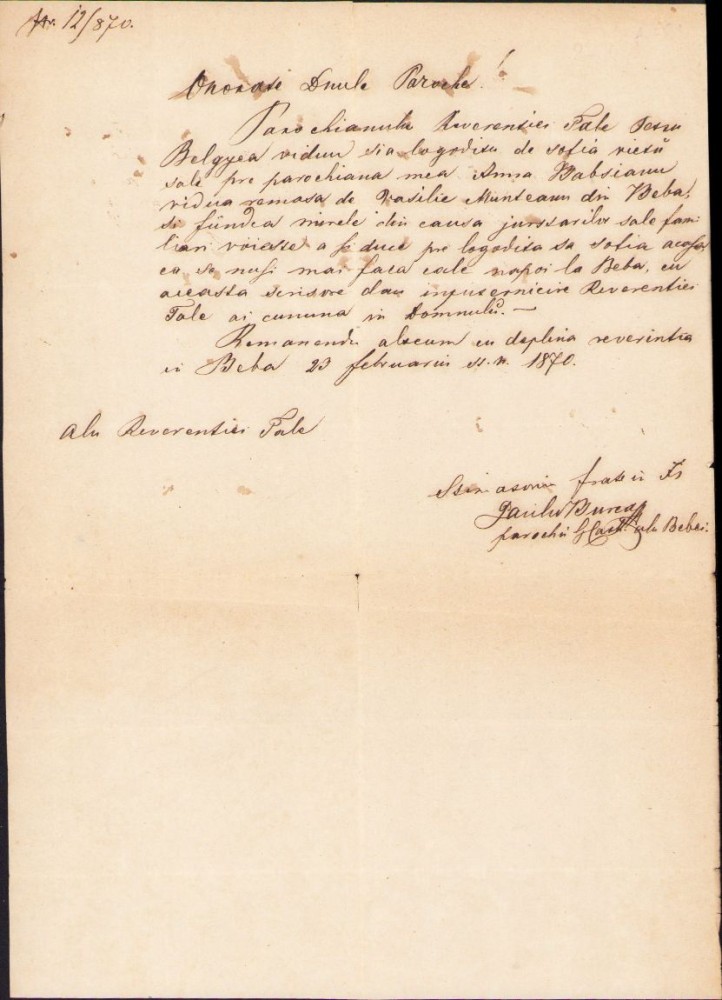 Nr. 12/870.
Onorate Dnule Paroche!
Parochianulu Reverentiei Tale
Belgyea viduu sia logoditu de sotia vietii
sale pre parochiana mea Anna Babsianu
vidua remasa de Vasilie Munteanu din Beba,
si fiindca mirele din causa jurstarilor sale fami
liari voiesse a si duce pre logodita sa sotia acasa,
ca sa nusi mai faca cale napoi la Beba, cu
aceasta scrisore dau inputernicire Reverentiei
Tale ai cununa in Domnulu. —
Remanendu alecum cu deplina reverintia
in Beba 23 februariu st. n. 1870.
Alu Reverentiei Tale
Stimatoriu frate in
Paulu
parochu alu Bebei.